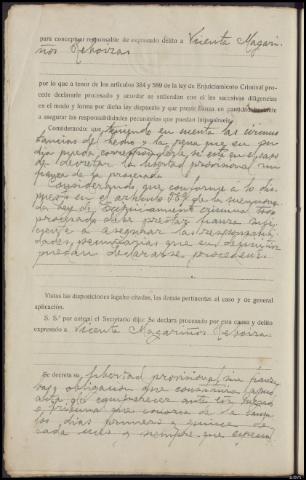 para conceptuar responsable de expresado delito a Vicenta Magari-
ños Reborras
por lo que a tenor de los artículos 384 y 589 de la ley de Enjuiciamiento Criminal pro-
cede declararle procesado y acordar se entiendan con él las sucesivas diligencias
en el modo y forma por dicha ley dispuesto y que preste fianza en cantidad bastante
a asegurar las responsabilidades pecuniarias que puedan imponérsele.
Considerando que teniendo en cuenta las circuns
tancias del hecho y la pena que en su
día pueda corresponderle, se está en el caso
de decretar la libertad provisional sin
fianza de la procesada
Considerando que conforme a lo dis-
puesto en el artículo 589 de la mencionada
Ley de Enjuiciamiento criminal todo
procesado debe prestar fianza sufi-
ciente a asegurar las responsabili-
dades pecuniarias que en definitiva
puedan declararse procedentes.
Vistas las disposiciones legales citadas, las demás pertinentes al caso y de general
aplicación.
S. S.ª por ante mí el Secretario dijo: Se declara procesado por esta causa y delito
expresado a Vicenta Magariños Reborra
Se decreta su libertad provisional sin fianza
bajo obligación que constituirá apud
acta de comparecer ante este Juzgado
o tribunal que conozca de la causa
los días primero y quince de
cada mes y siempre que